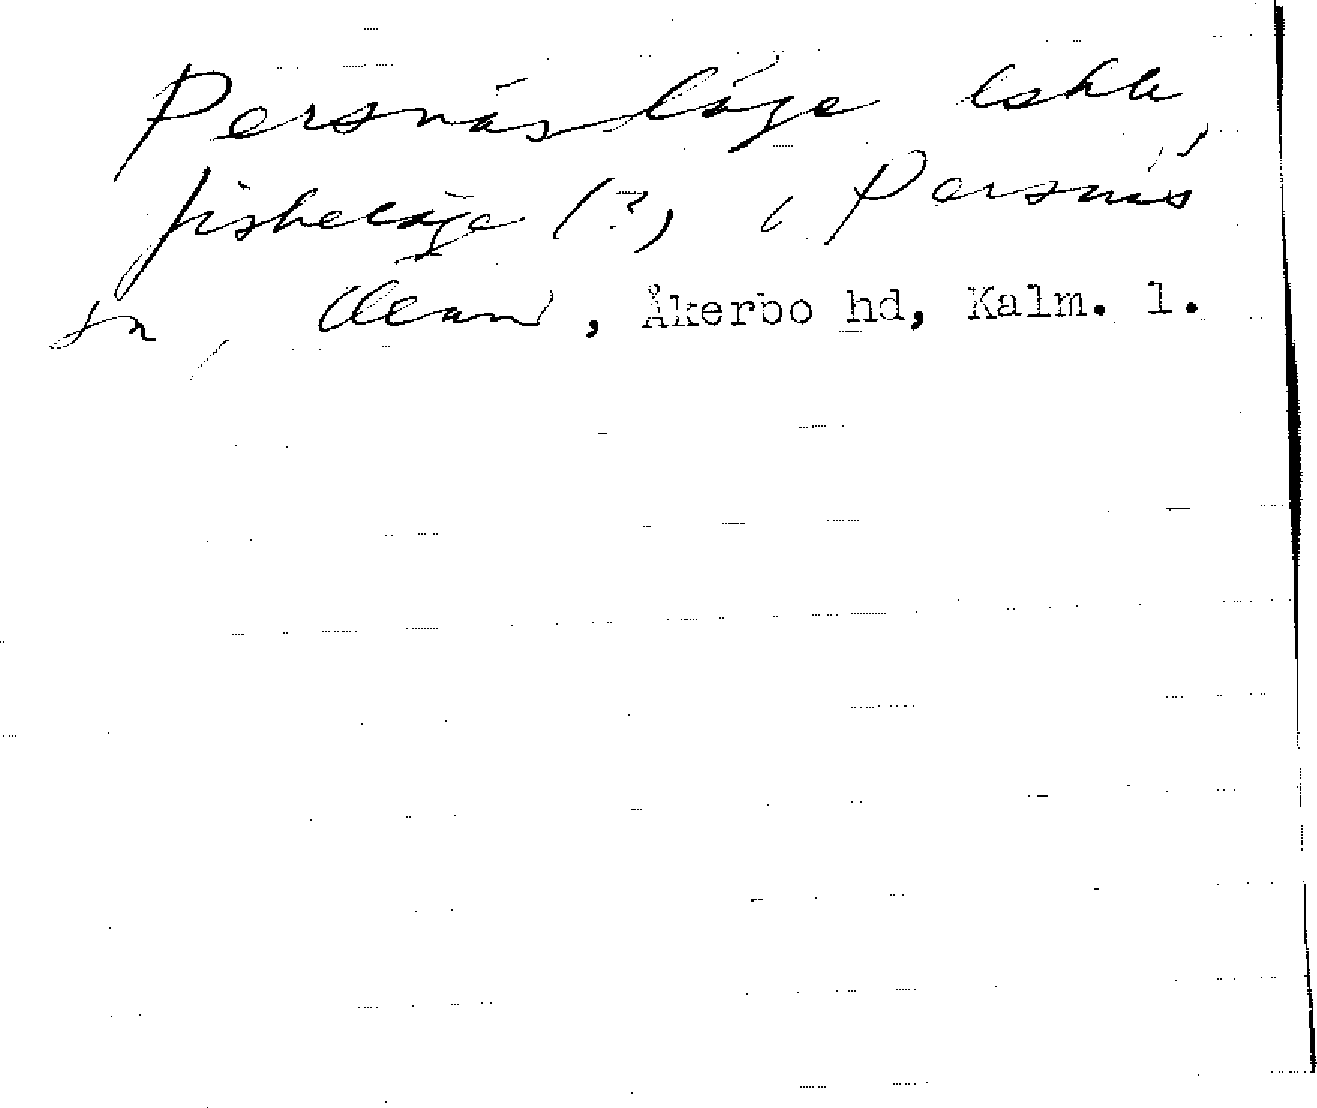 Persnäs läge
fiskeläge (?) i Persnäs
sn, Öland, Åkerbo hd, Kalm. l.